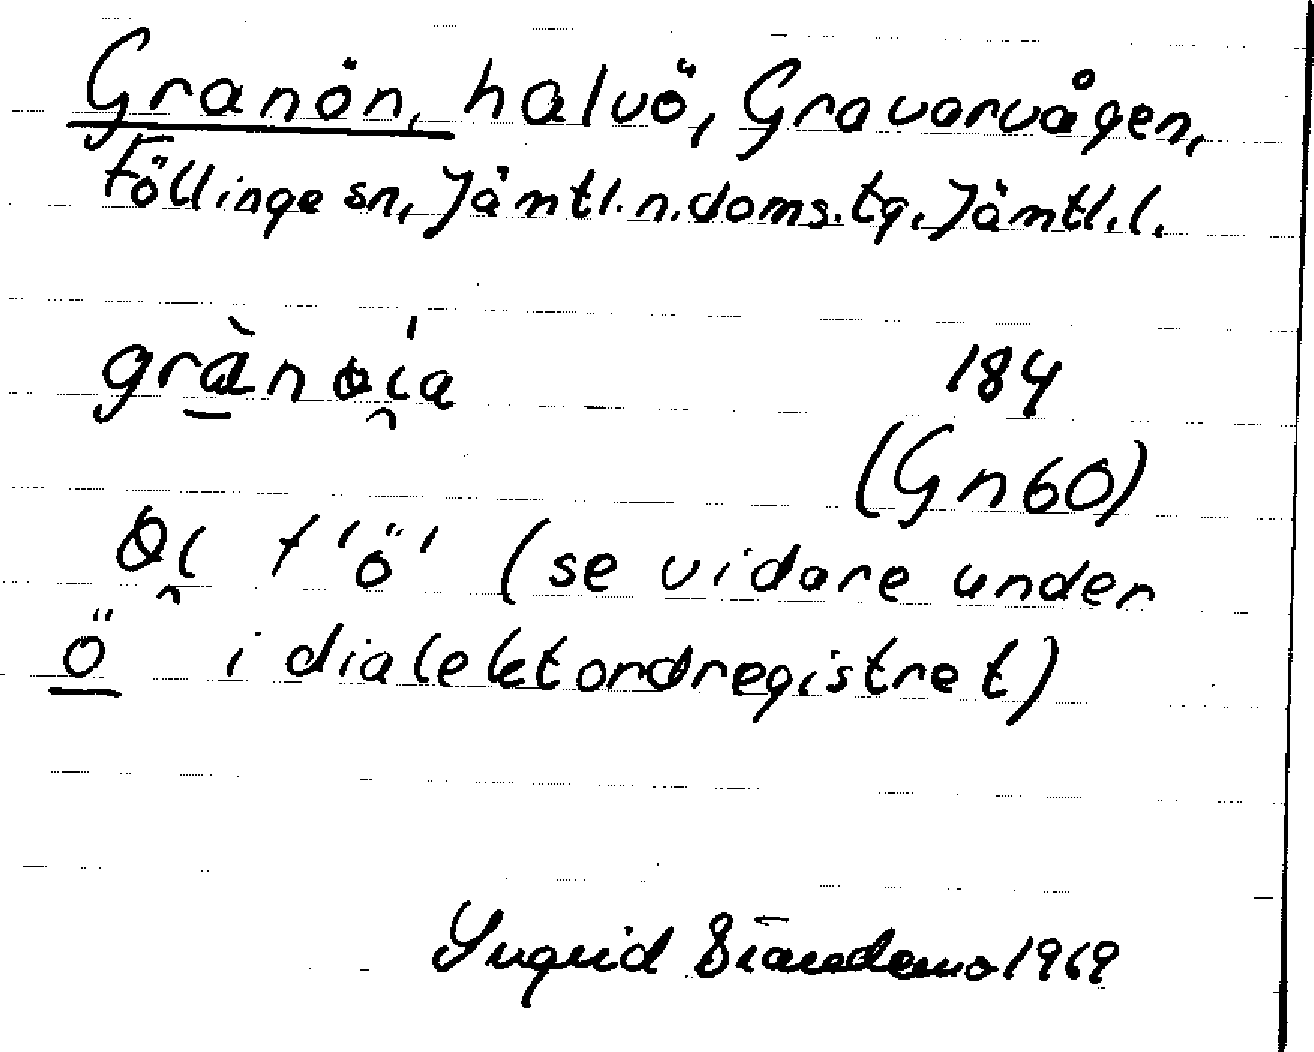 Granön, halvö, Gravarvågen,
Föllinge sn, Jämtl.n.doms.tg. Jämtl.l.
184
(Gn60)
f 'ö' (se vidare under
ö i dialektordregistret)
Ingrid 1969